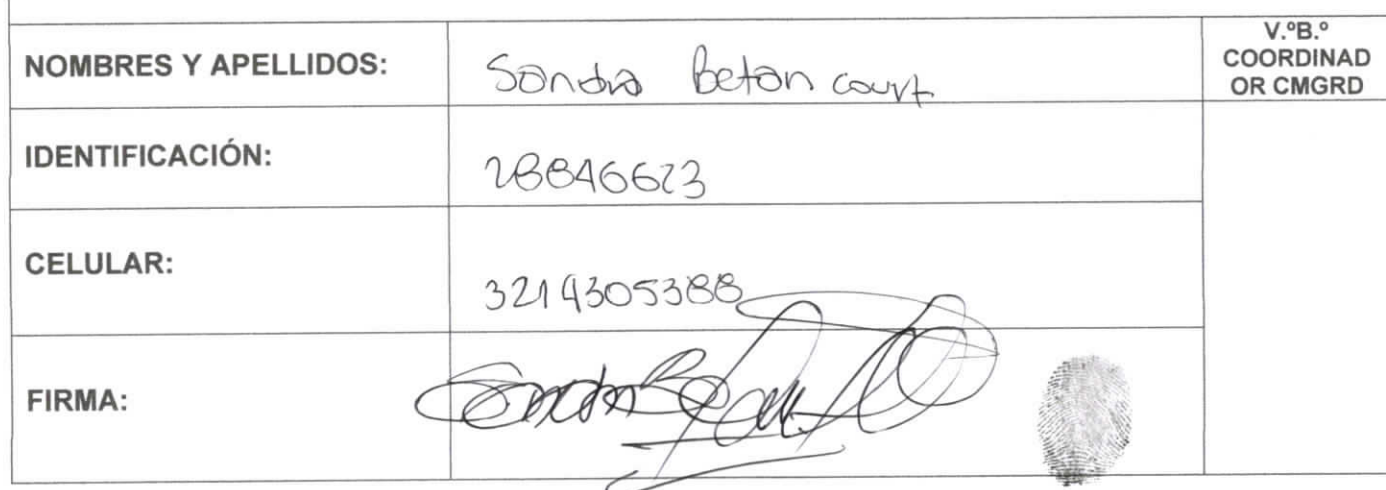 NOMBRES Y APELLIDOS: Sandra Betancourt
V.ºB.º
COORDINAD
OR CMGRD
IDENTIFICACIÓN: 28846623
CELULAR: 3214305388
FIRMA: Sandra Betancourt